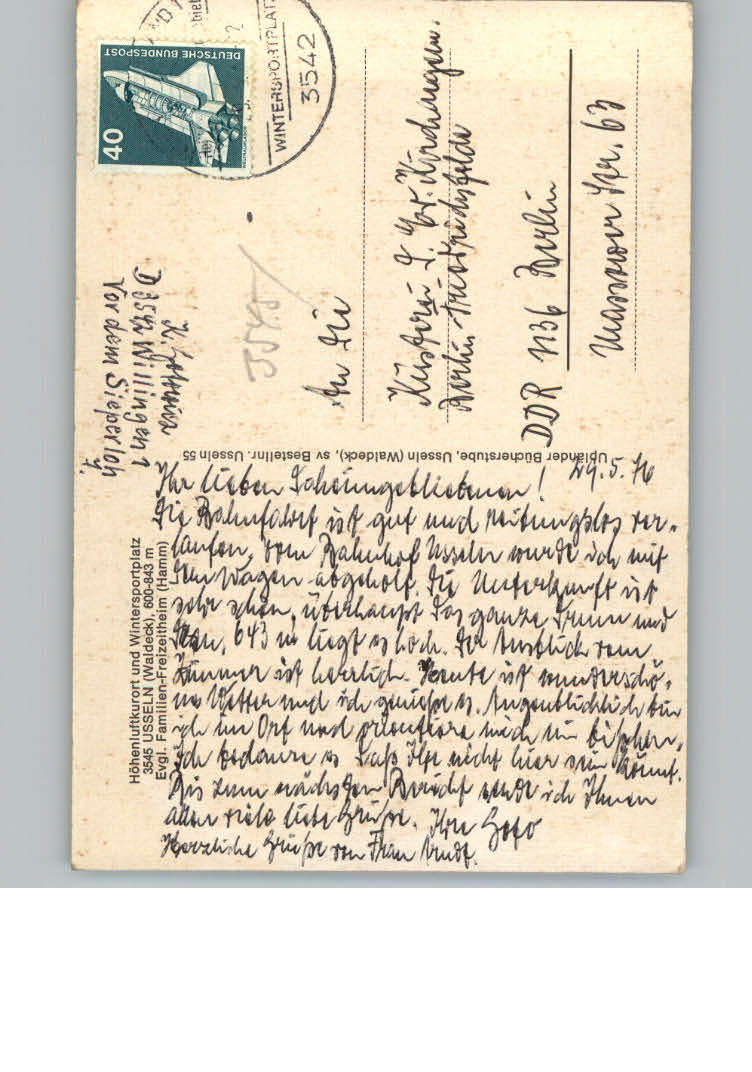 Höhenluftkurort und Wintersportplatz
3545 USSELN (Waldeck), 600-843 m
Evgl. Familien-Freizeitheim (Hamm)
29.5.76
Ihr lieben Daheimgebliebenen!
Die Bahnfahrt ist gut und reibungslos ver-
laufen, vom Bahnhof Usseln wurde ich mit
dem Wagen abgeholt. Die Unterkunft ist
sehr schön, überhaupt das ganze Drum und
Dran, 643 m liegt es hoch. Der Ausblick vom
Zimmer ist herrlich. Heute ist wunderschö-
nes Wetter und ich genieße es. Augenblicklich bin
ich im Ort und orientiere mich ein bißchen.
Ich bedaure es daß Ihr nicht hier sein könnt.
Bis zum nächsten Bericht sende ich Ihnen
allen viele liebe Grüße. Ihre
Herzliche Grüße von Frau Arndt.
Upländer Bücherstube, Usseln (Waldeck), sv Bestellnr. Usseln 55
D 3542 Willingen 1
Vor dem Sieperloh
DEUTSCHE BUNDESPOST
40
WINTERSPORTPLATZ
3542
An die
Küsterei d. Ev. Kirchengem.
Berlin-Friedrichsfelde
DDR 1136 Berlin
Massower Str. 63